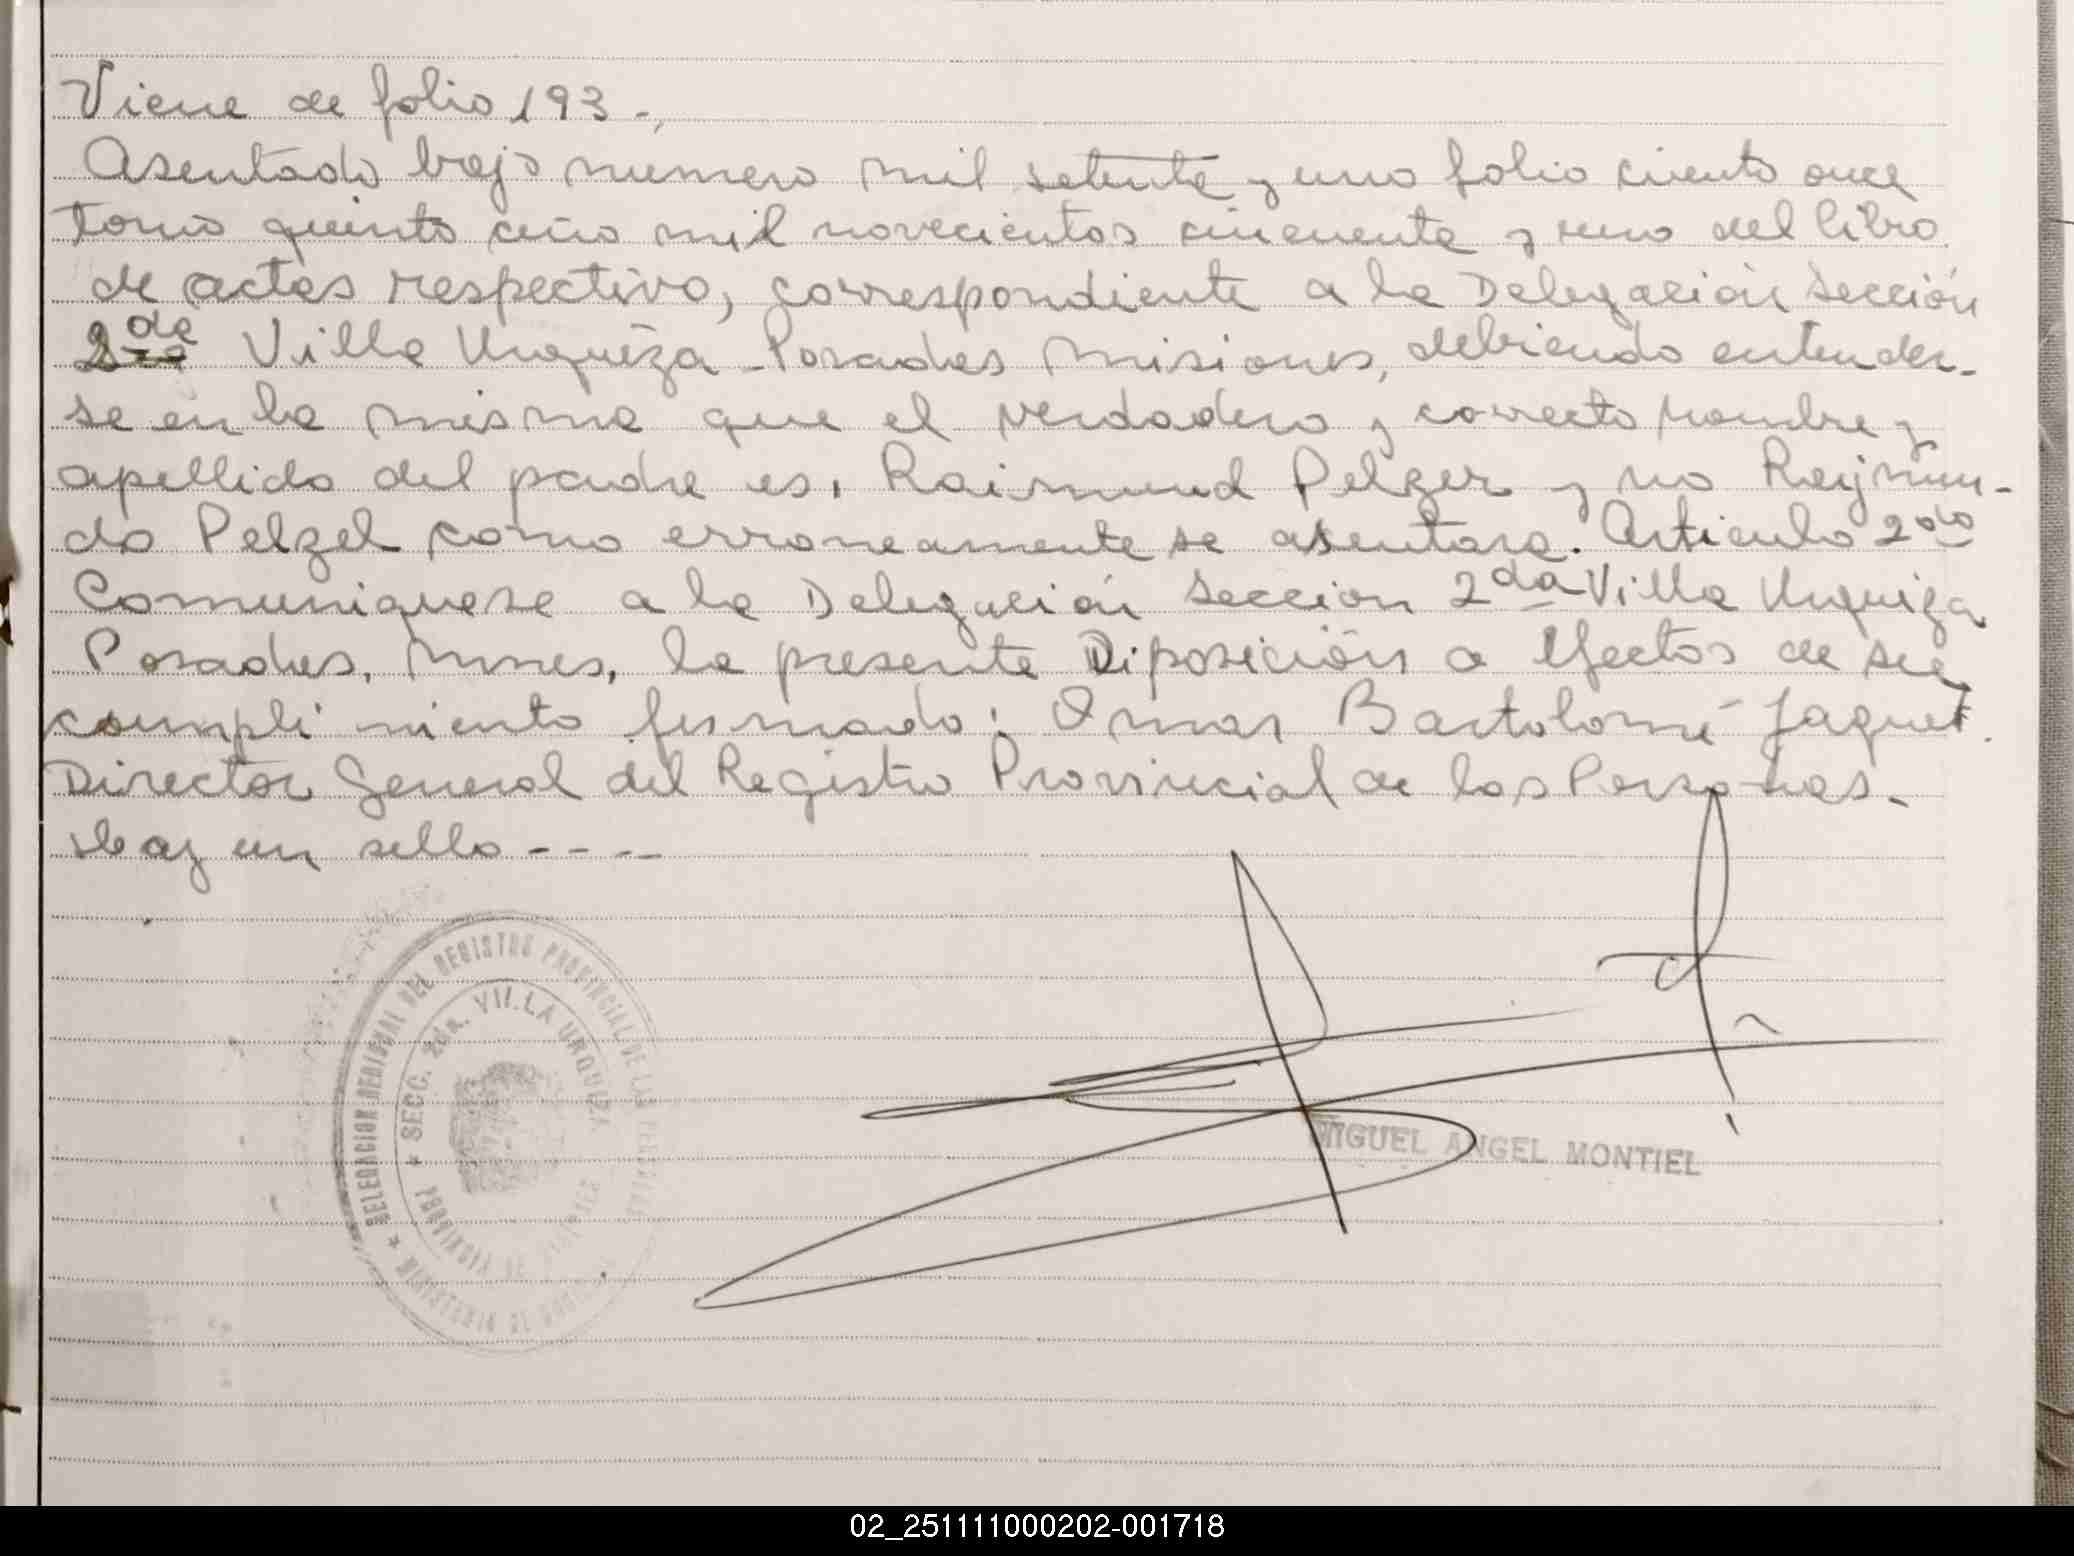 Viene de folio 193-,
Asentado bajo numero mil setenta y uno folio ciento once
tomo quinto año mil novecientos cincuenta y uno del libro
de actas respectivo, correspondiente a la Delegación Sección
2da Villa Urquiza - Posadas Misiones, debiendo entender-
se en la misma que el verdadero y correcto nombre y
apellido del padre es, Raimund Pelzer y no Reymun-
do Pelzel como erroneamente se asentara. Articulo 2do
Comuniquese a la Delegación Seccion 2da Villa Urquiza
Posadas, Mnes, la presente Diposición a efectos de su
cumplimiento firmado: Omar Bartolomé Jaquet.
Director General del Registro Provincial de las Personas.-
Hay un sello ----
DELEGACION REGIONAL DEL REGISTRO PROVINCIAL DE LAS PERSONAS
SECC. 2da. VILLA URQUIZA
MINISTERIO DE GOBIERNO
MIGUEL ANGEL MONTIEL
02_251111000202-001718